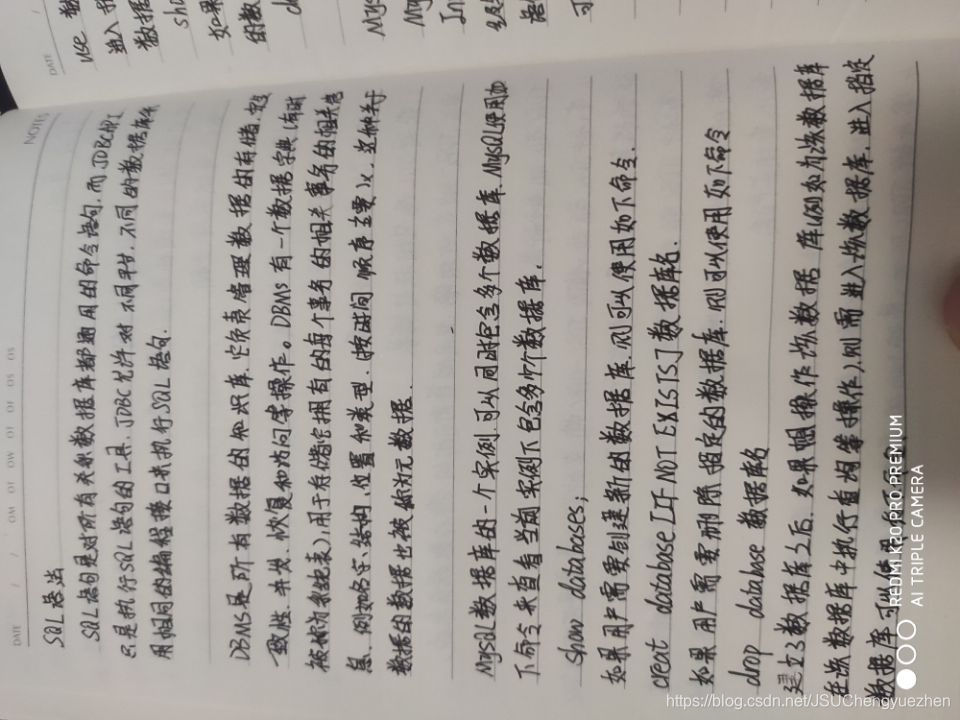 NOTES
DATE
SQL语法
SQL语句是对所有关系数据库都通用的命令语句,而JDBC API
只是执行SQL语句的工具,JDBC允许对不同平台、不同的数据库采
用相同的编程接口来执行SQL语句.
DBMS是所有数据的知识库,它负责管理数据的存储、安全
一致性、并发、恢复和访问等操作。DBMS有一个数据字典(有时
被称为系统表),用于存储它拥有的每个事务的相关事务的相关信
息,例如名字、结构、位置和类型.(按时间 顺序 主要)x,这种关于
数据的数据也被称为元数据.
MySQL数据库的一个实例,可以同时包含多个数据库,MySQL使用如
下命令来查看当前实例下包含多个数据库.
show databases;
如果用户需要创建新的数据库,则可以使用如下命令.
creat database [IF NOT EXISTS] 数据库名.
如果用户需要删除指定的数据库,则可以使用如下命令
drop database 数据库名
建立了数据库之后,如果想操作该数据库(例如为该数据库
在该数据库中执行查询等操作),则需进入该数据库,进入指定
数据库可以使用
REDMI K20 PRO PREMIUM
AI TRIPLE CAMERA
https://blog.csdn.net/JSUChengyuezhen